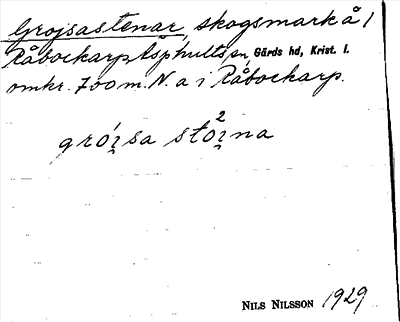 Grojsastenar, skogsmark å 1
Råbockarp Äsphults sn, Gärds hd, Krist. l.
omkr. 700 m. N. a i Råbockarp.
gróı̯sa stoı̯²na
NILS NILSSON 1929